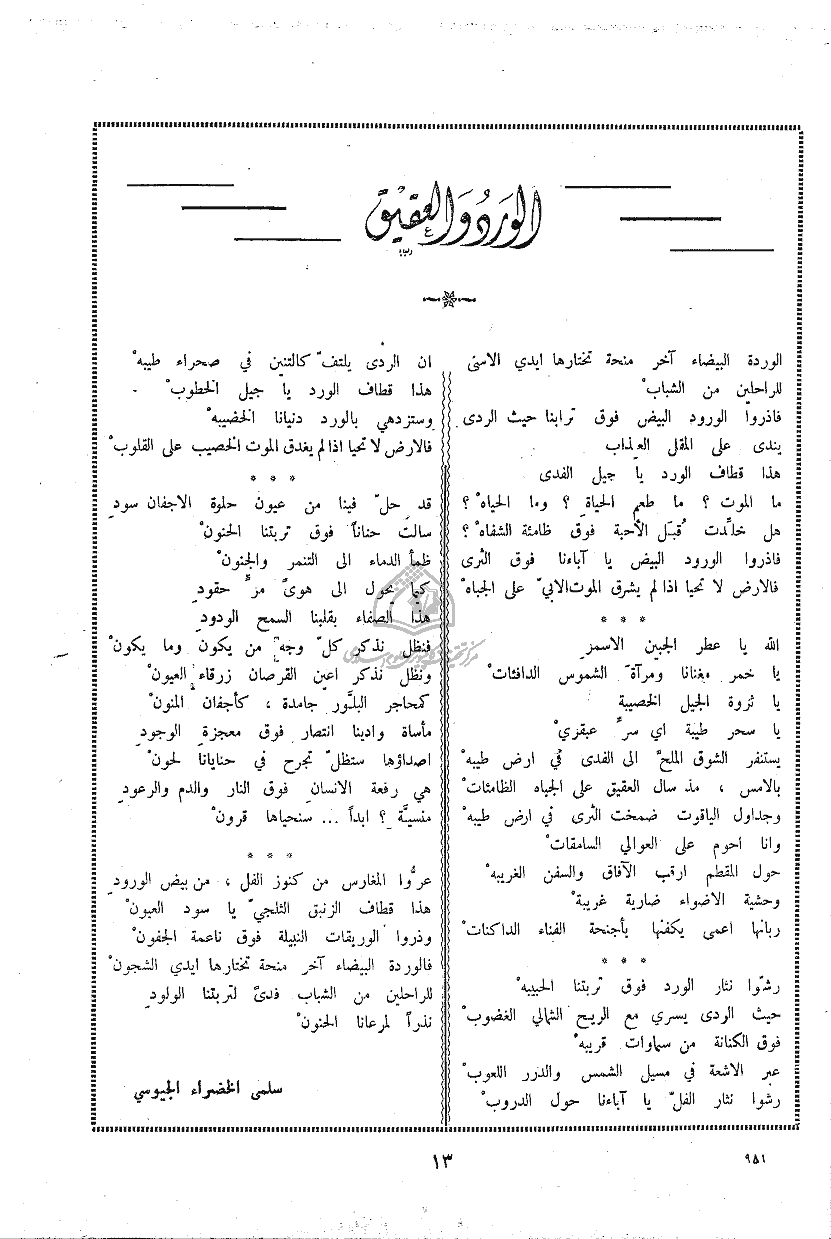 الورد والعقيق
الوردة البيضاء آخر منحة تختارها ايدي الاسى
للراحلين من الشبابْ
فاذروا الورود البيض فوق ترابنا حيث الردى
يندى على المقل العِذاب
هذا قطاف الورد يا جيل الفدى
ما الموت ؟ ما طعم الحياةِ ؟ وما الحياهْ ؟
هل خلّدت قُبَل الأحبة فوق ظامئة الشفاهْ ؟
فاذروا الورود البيض يا آباءنا فوق الثرى
فالارض لا تحيا اذا لم يشرق الموت الابيّ على الجباهْ
* * *
الله يا عطر الجبين الاسمرِ
يا خمر مغنانا ومرآةَ الشموس الدافئاتْ
يا ثروة الجيل الخصيبة
يا سحر طيبة اي سرٍّ عبقريْ
يستنفر الشوق الملحَّ الى الفدى في ارض طيبهْ
بالامس ، مذ سال العقيق على الجباه الظامئاتْ
وجداول الياقوت ضمخت الثرى في ارض طيبهْ
وانا احوم على العوالي السامقات
حول المقطم ارقب الآفاق والسفن الغريبهْ
وحشية الاضواء ضارية غريبهْ
ربانها اعمى يكفنها بأجنحة الفناء الداكناتْ
* * *
رشّوا نثار الورد فوق تربتنا الحبيبهْ
حيث الردى يسري مع الريح الشمالي الغضوبْ
فوق الكنانة من سماوات قريبهْ
عبر الاشعة في مسيل الشمس والدرر اللعوبْ
رشوا نثار الفلّ يا آباءنا حول الدروبْ
ان الردى يلتفّ كالتنين في صحراء طيبهْ
هذا قطاف الورد يا جيل الخطوبْ
وستزدهي بالورد دنيانا الخضيبهْ
فالارض لا تحيا اذا لم يغدق الموت الخصيب على القلوبْ
* * *
قد حلّ فينا من عيون حلوة الاجفان سودِ
سالت حناناً فوق تربتنا الحنونْ
ظمأ الدماء الى التنمر والجنونْ
كيما يحول الى هوىً مرٍّ حقودِ
هذا الصفاء بقلبنا السمح الودودِ
فنظل نذكر كلّ وجهٍ من يكون وما يكونْ
ونظل نذكر اعين القرصان زرقاء العيونْ
كمحاجر البلّور جامدة ، كأجفان المنونْ
مأساة وادينا انتصار فوق معجزة الوجودِ
اصداؤها ستظلّ تجرح في حنايانا لحونْ
هي رفعة الانسان فوق النار والدم والرعودِ
منسيّة ؟ ابداً ... سنحياها قرونْ
* * *
عرّوا المغارس من كنوز الفل ، من بيض الورودِ
هذا قطاف الزنبق الثلجيّ يا سود العيونْ
وذروا الوريقات النبيلة فوق ناعمة الجفونْ
فالوردة البيضاء آخر منحة تختارها ايدي الشجونْ
للراحلين من الشباب فدىً لتربتنا الولودِ
نذراً لمرعانا الحنونْ
سلمى الخضراء الجيوسي
١٣
٩٥١